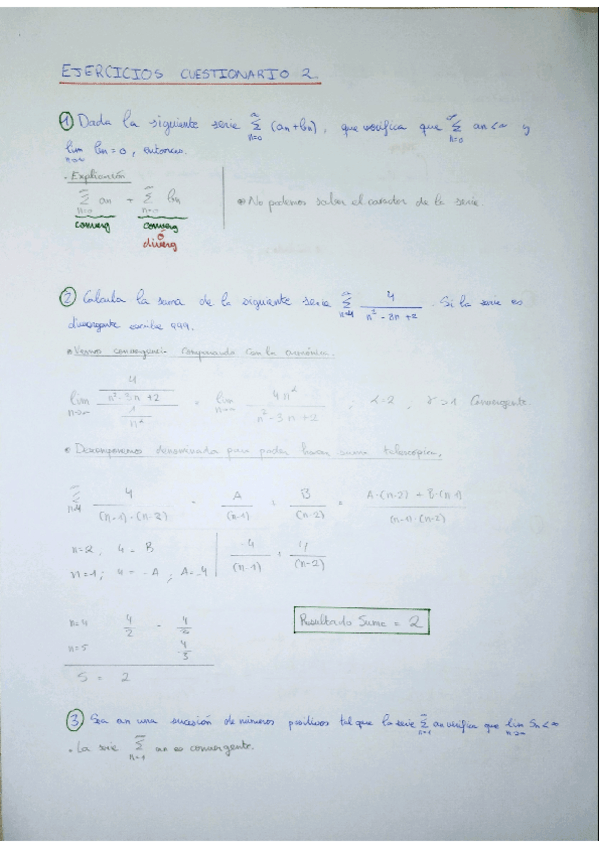 EJERCICIOS CUESTIONARIO 2.
① Dada la siguiente serie ∞Σn=0 (an+bn), que verifica que ∞Σn=0 an<∞ y
lim n→∞ bn=0, entonces
- Explicación
∞Σn=0 an + ∞Σn=0 bn
converg converg
ó
diverg
• No podemos saber el caracter de la serie.
② Calcula la suma de la siguiente serie ∞Σn=4 4/(n²-3n+2). Si la serie es
divergente escribe 999.
• Vemos convergencia comparando con la armónica.
lim n→∞ (4/(n²-3n+2))/(1/n^α) = lim n→∞ 4n^α/(n²-3n+2) ; α=2, >1 Convergente.
• Descomponemos denominador para poder hacer suma telescópica.
∞Σn=4 4/((n-1)·(n-2)) = A/(n-1) + B/(n-2) = (A·(n-2) + B·(n-1))/((n-1)·(n-2))
n=2, 4 = B
n=1; 4 = -A ; A=-4
-4/(n-1) + 4/(n-2)
n=4 4/2 - 4/3
n=5 4/3
S = 2
Resultado Suma = 2
③ Sea an una sucesión de números positivos tal que la serie ∞Σn=1 an verifica que lim n→∞ Sn<∞
• La serie ∞Σn=1 an es convergente.